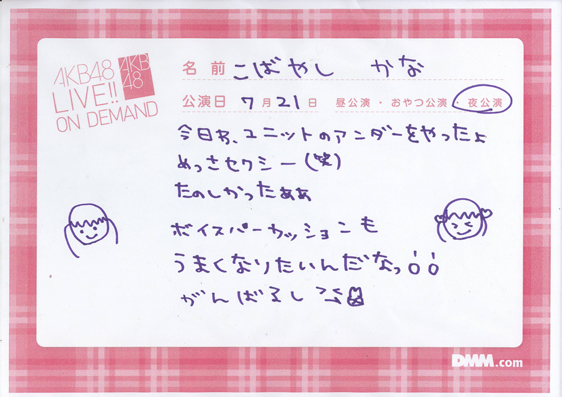 AKB48
LIVE!!
ON DEMAND
AKB
48
名前 こばやし かな
公演日 7月21日 昼公演・おやつ公演・夜公演
今日わ、ユニットのアンダーをやったよ
めっさセクシー(笑)
たのしかったぁぁ
ボイスパーカッションも
うまくなりたいんだなっ
がんばるし
DMM.com